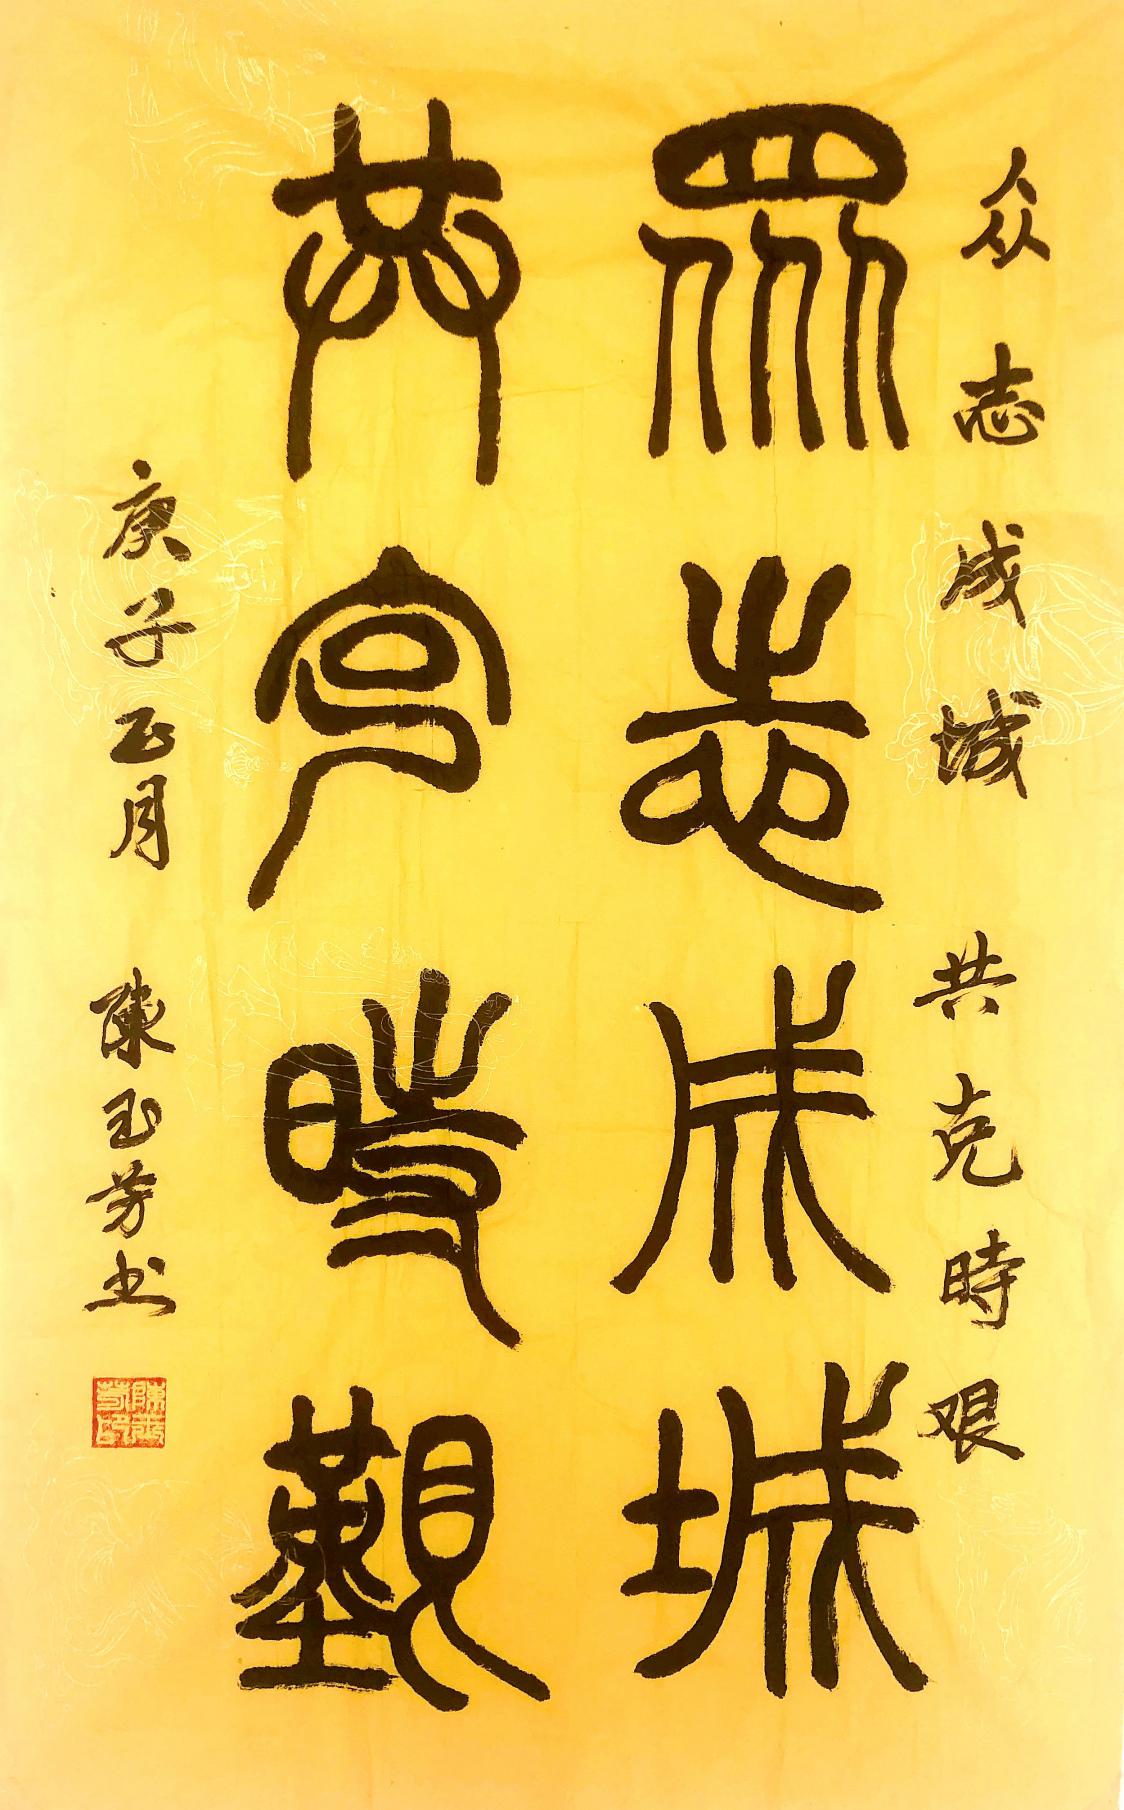 众志成城 共克時艱
眾志成城
共克時艱
庚子正月 陳玉芳书
陳玉芳印